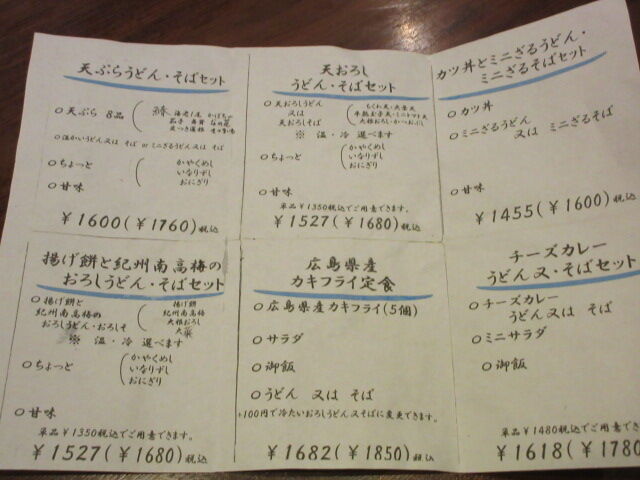 天ぷらうどん・そばセット
○天ぷら 8品
海老1尾 かぼちゃ
○温かいうどん又は そば or ミニざるうどん又は そば
○ちょっと
かやくめし
いなりずし
おにぎり
○甘味
￥1600(￥1760)税込
天おろし
うどん・そばセット
○天おろしうどん
又は
天おろしそば
ちくわ天・大葉天
半熟玉子天・ミニトマト天
大根おろし・かつおぶし
※ 温・冷 選べます
○ちょっと
かやくめし
いなりずし
おにぎり
○甘味
単品￥1350税込でご用意できます。
￥1527(￥1680)税込
カツ丼とミニざるうどん・
ミニざるそばセット
○カツ丼
○ミニざるうどん
又は ミニざるそば
○甘味
￥1455(￥1600)税込
揚げ餅と紀州南高梅の
おろしうどん・そばセット
○揚げ餅と
紀州南高梅の
おろしうどん・おろしそ
揚げ餅
紀州南高梅
大根おろし
大葉
※ 温・冷 選べます
○ちょっと
かやくめし
いなりずし
おにぎり
○甘味
単品￥1350税込でご用意できます。
￥1527(￥1680)税込
広島県産
カキフライ定食
○広島県産カキフライ(5個)
○サラダ
○御飯
○うどん 又は そば
+100円で冷たいおろしうどん又そばに変更できます。
￥1682(￥1850)税込
チーズカレー
うどん又・そばセット
○チーズカレー
うどん又は そば
○ミニサラダ
○御飯
単品￥1480税込でご用意できます
￥1618(￥1780